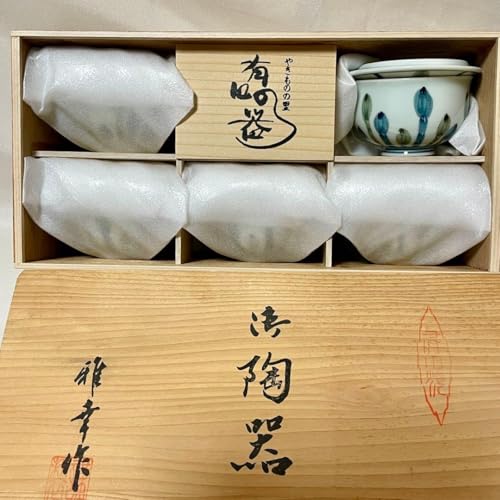 やきものの里
有田の器
御陶器
雅幸作